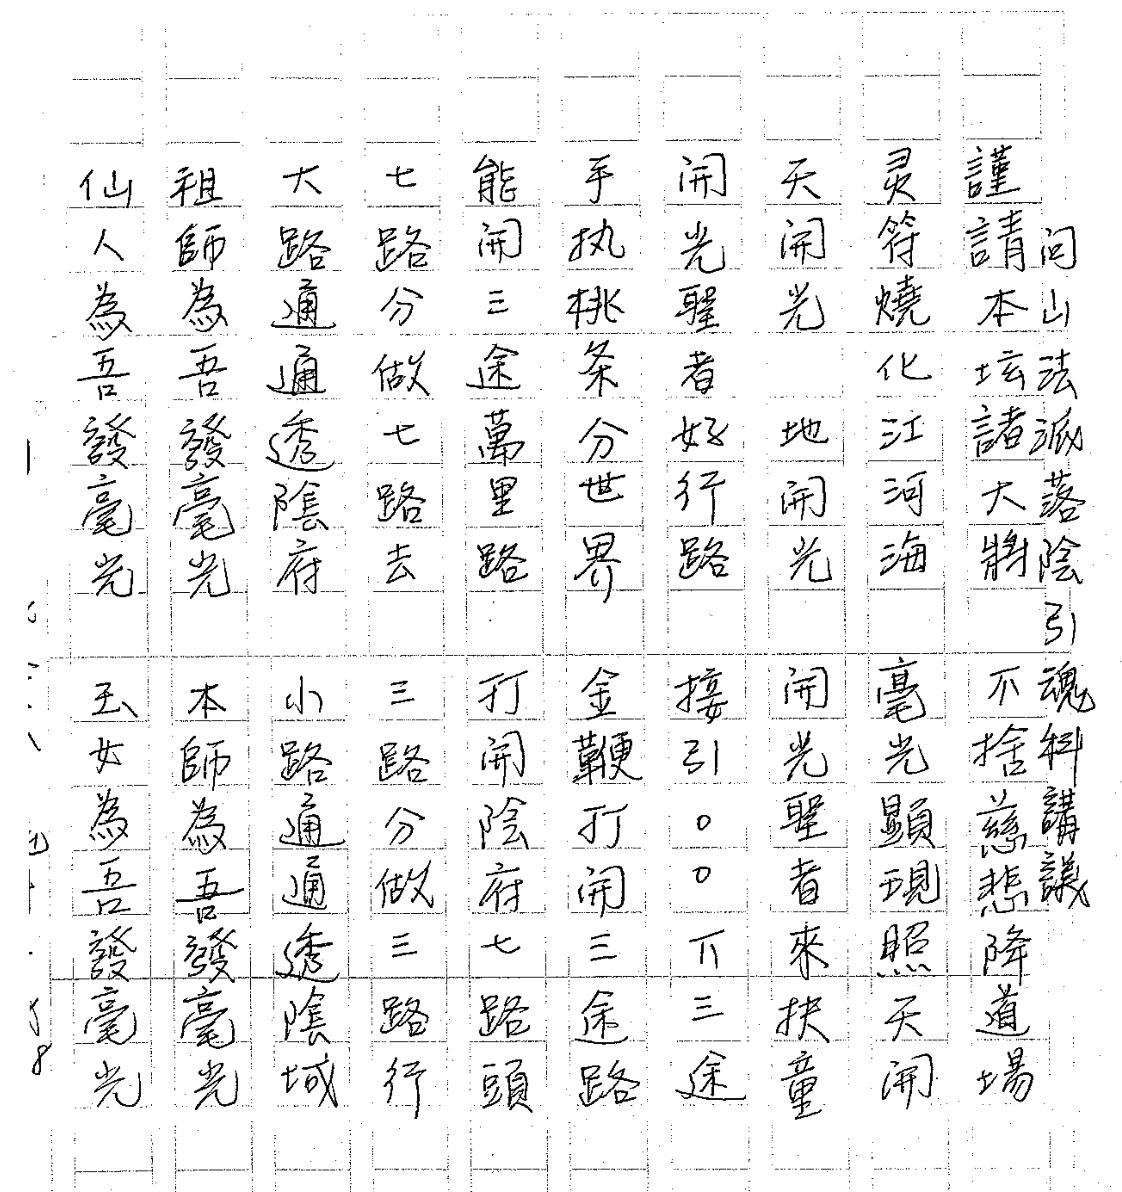 问山法派落陰引魂科講議
謹請本坛諸大將　不捨慈悲降道場
灵符燒化江河海　毫光顕現照天開
天開光　地開光　開光聖者來扶童
開光聖者好行路　接引〇〇下三途
手执桃条分世界　金鞭打開三途路
能開三途萬里路　打開陰府七路頭
七路分做七路去　三路分做三路行
大路通通透陰府　小路通通透陰域
祖師為吾發毫光　本師為吾發毫光
仙人為吾發毫光　玉女為吾發毫光